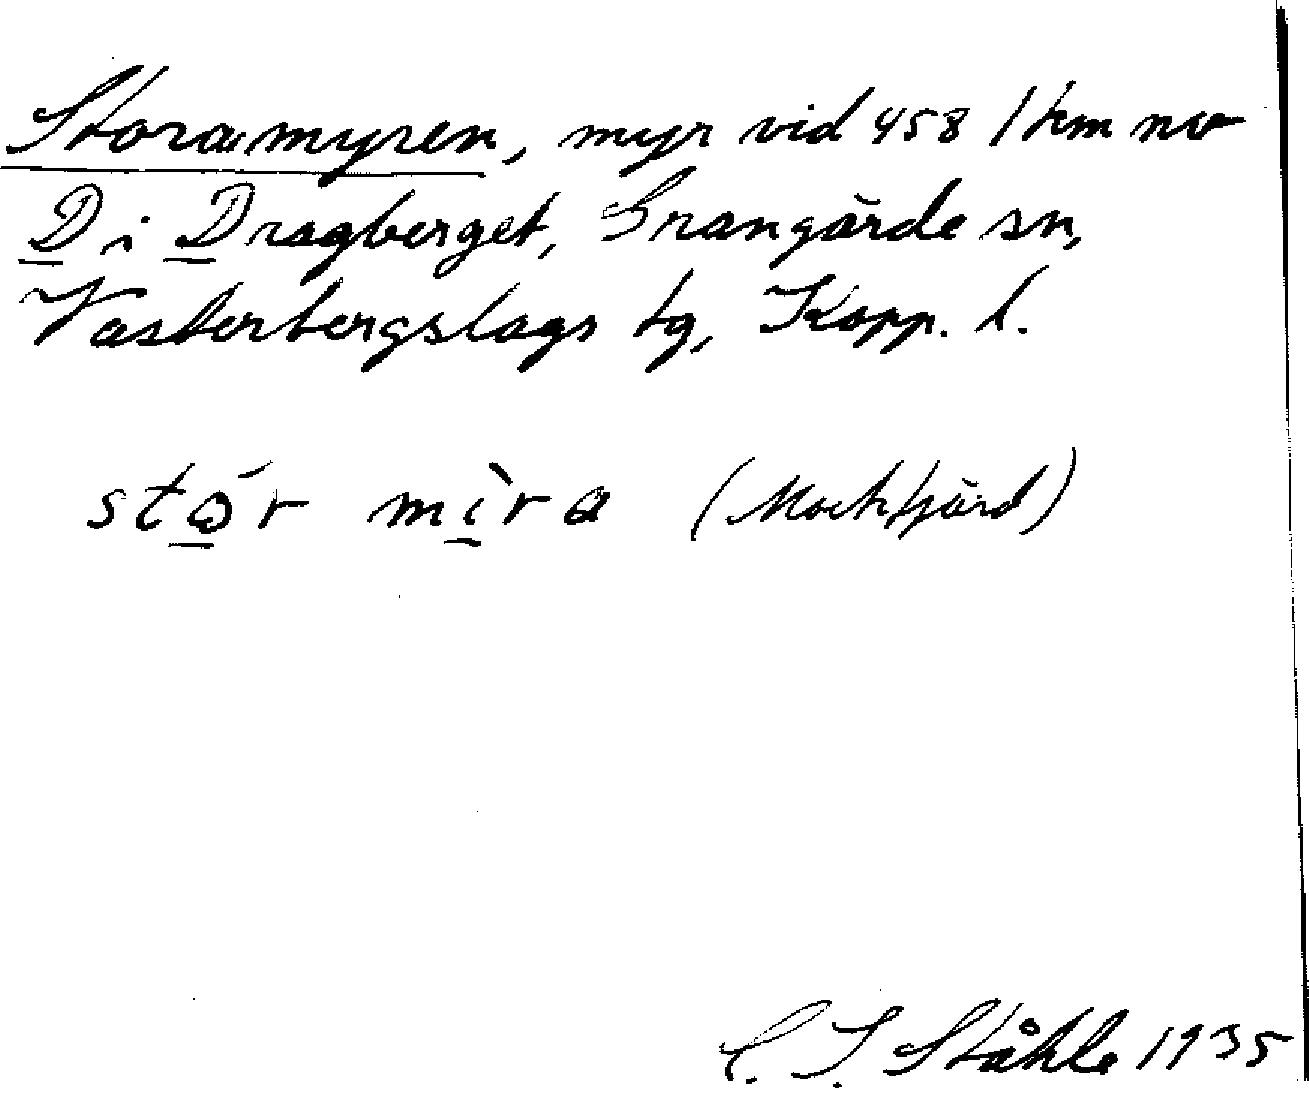 Storamyren, myr vid 458 1 km nv
D i Dragberget, Grangärde sn,
Västerbergslags tg, Kopp. l.
stór mìra (Mockfjärd)
C. I. Ståhle 1935